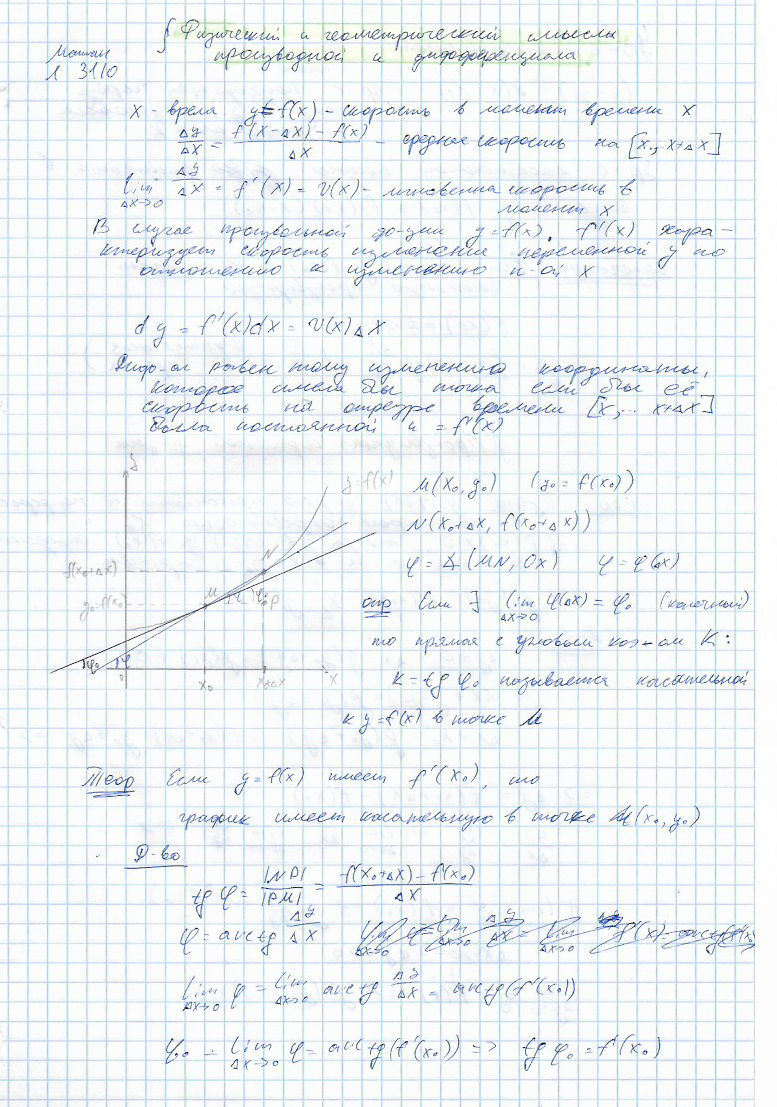 § Физический и геометрический смыслы
производной и дифференциала
Матан
Л 31/10
x - время y = f(x) - скорость в момент времени x
Δy/Δx = f(x-Δx) - f(x) / Δx - средняя скорость на [x, x+Δx]
lim Δx→0 Δy/Δx = f'(x) = v(x) - мгновенна скорость в
момент x
В случае произвольной фо-ции y=f(x), f'(x) хара-
ктеризует скорость изменения переменной y по
отношению к изменению п-ой x
dy = f'(x)dx = v(x)Δx
Дифф-ал равен тому изменению координаты,
которое имела бы точка если бы её
скорость на отрезре времени [x,... x+Δx]
была постоянной и = f'(x)
y y=f(x) M(x₀, y₀) (y₀ = f(x₀))
N(x₀+Δx, f(x₀+Δx))
f(x₀+Δx) N φ = ∡(MN, Ox) φ = φ(Δx)
y₀=f(x₀) M φ φ₀ P опр Если ∃ lim Δx→0 φ(Δx) = φ₀ (конечный)
то прямая с угловым коэ-ом K:
φ₀ φ 0 x₀ x₀+Δx x K = tg φ₀ называется касательной
к y=f(x) в точке M
Теор Если y=f(x) имеет f'(x₀), то
график имеет касательную в точке M(x₀, y₀)
Д-во
tg φ = |NP|/|PM| = f(x₀+Δx) - f(x₀) / Δx
φ = arctg Δy/Δx
lim Δx→0 φ = lim Δx→0 arctg Δy/Δx = arctg(f'(x₀))
φ₀ = lim Δx→0 φ = arctg(f'(x₀)) => tg φ₀ = f'(x₀)